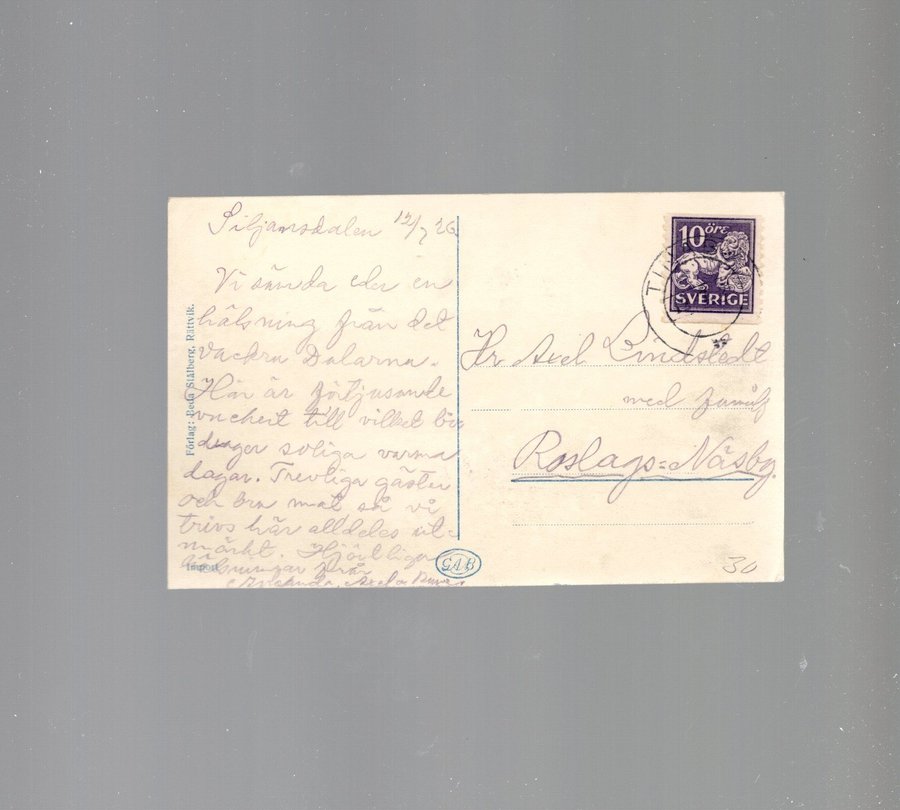 Siljansdalen 12/7 26
Vi sända eder en
hälsning från det
vackra Dalarna.
Här är förtjusande
vackert till vilket
soliga varma
dagar. Trevliga gäster
och bra mat så vi
trivs här alldeles ut-
märkt. Hjärtliga
hälsningar från
Axel o
Förlag: Beda Stålberg, Rättvik.
Import.
GAB
10 öre
SVERIGE
Hr Axel Lindstedt
med familj
Roslags=Näsby.
30